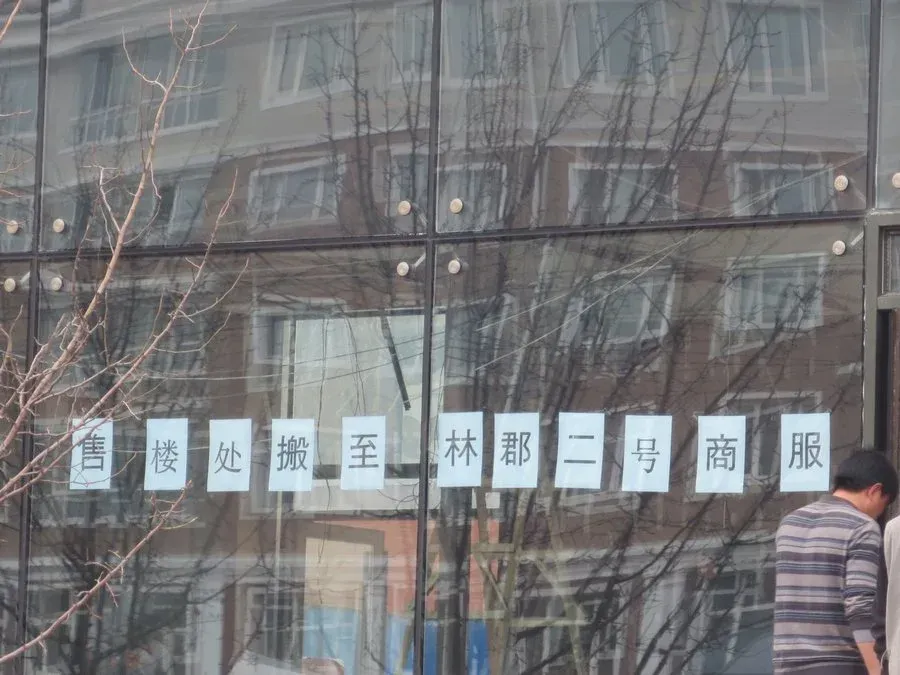 售楼处搬至林郡二号商服